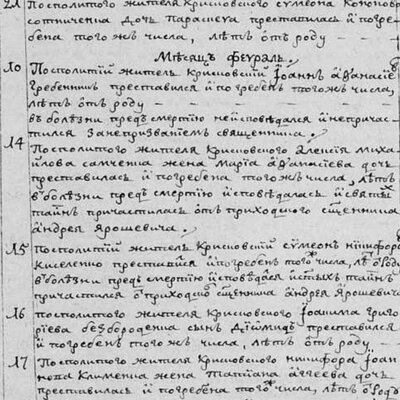 21 Посполитого жителя Крисковского Сумеона Кононов
сотниченка дочъ Парасκева преставилась и погре-
бена того жъ числа, лѣтъ отъ роду
Мѣсяцъ феураль.
10 Посполитій житель Крисковскій Іоаннъ Аѳанасіе
Гребенникъ преставился и погребенъ того жъ числа,
лѣтъ отъ роду
въ болѣзни предъ смертію неисповѣдался и непричас-
тился за непризваніемъ священника.
14 Посполитого жителя Крисковского Алексія Миха-
йлова самченка жена Марія Аѳанасіева дочъ
преставилась и погребена того жъ числа, лѣтъ
въ болѣзни предъ смертію исповѣдалась и святыхъ
таинъ причастилась отъ приходского сщенника
Андрея Ярошевича.
15 Посполитій житель Крисковскій Сумеонъ Никифоро
Киселенко преставился и погребенъ того числа, лѣ отъ роду
въ болѣзни предъ смертію исповѣдался истыхъ таинъ
причастился отъ приходско сщенника Андрея Ярошевича
16 Посполитого жителя Крисковского Іоакима Григо
ріева безбородченка сынъ Діѡмидъ преставился
и погребенъ того жъ числа, лѣтъ отъ роду
17 Посполитого жителя Крисковского Никифора Іоан
нова Клименка жена Татіана Аггеева дочъ
преставилась и погребена того числа, лѣтъ отъ роду